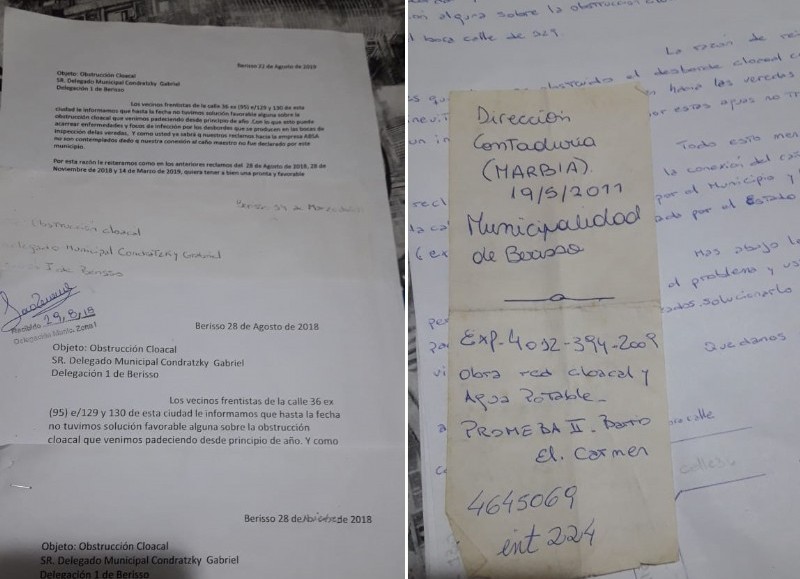 Berisso 22 de Agosto de 2019
Objeto: Obstrucción Cloacal
SR. Delegado Municipal Condratzky Gabriel
Delegación 1 de Berisso
Los vecinos frentistas de la calle 36 ex (95) e/129 y 130 de esta
ciudad le informamos que hasta la fecha no tuvimos solución favorable alguna sobre la
obstrucción cloacal que venimos padeciendo desde principio de año. Con lo que esto puede
acarrear enfermedades y focos de infección por los desbordes que se producen en las bocas de
inspección delas veredas, Y como usted ya sabrá q nuestros reclamos hacia la empresa ABSA
no son contemplados dado q nuestra conexión al caño maestro no fue declarado por este
municipio.
Por esta razón le reiteramos como en los anteriores reclamos del 28 de Agosto de 2018, 28 de
Noviembre de 2018 y 14 de Marzo de 2019, quiera tener a bien una pronta y favorable
Berisso 14 de Marzo
Obstrucción cloacal
Delegado Municipal Condratzky Gabriel
1 de Berisso
Recibido 29,8,19
Delegación Munic. Zona I
Berisso 28 de Agosto de 2018
Objeto: Obstrucción Cloacal
SR. Delegado Municipal Condratzky Gabriel
Delegación 1 de Berisso
Los vecinos frentistas de la calle 36 ex
(95) e/129 y 130 de esta ciudad le informamos que hasta la fecha
no tuvimos solución favorable alguna sobre la obstrucción
cloacal que venimos padeciendo desde principio de año. Y como
Berisso 28 de Noviembre de 2018
Objeto: Obstrucción Cloacal
SR. Delegado Municipal Condratzky Gabriel
Delegación 1 de Berisso
alguna sobre la
boca calle de 129.
La razón de
el desborde cloacal
hacia las veredas
por estas aguas no
Todo esto
la conexión del
por el Municipio y
por el Estado
Mas abajo
el problema y
solucionarlo
Quedamos
calle
calle 36
Dirección
Contaduría
(MARBIA).
19/5/2011
Municipalidad
de Berisso
Exp-4012-394-2009
Obra red cloacal y
Agua Potable_
PROMEBA II. Barrio
El Carmen
4645069
int 224